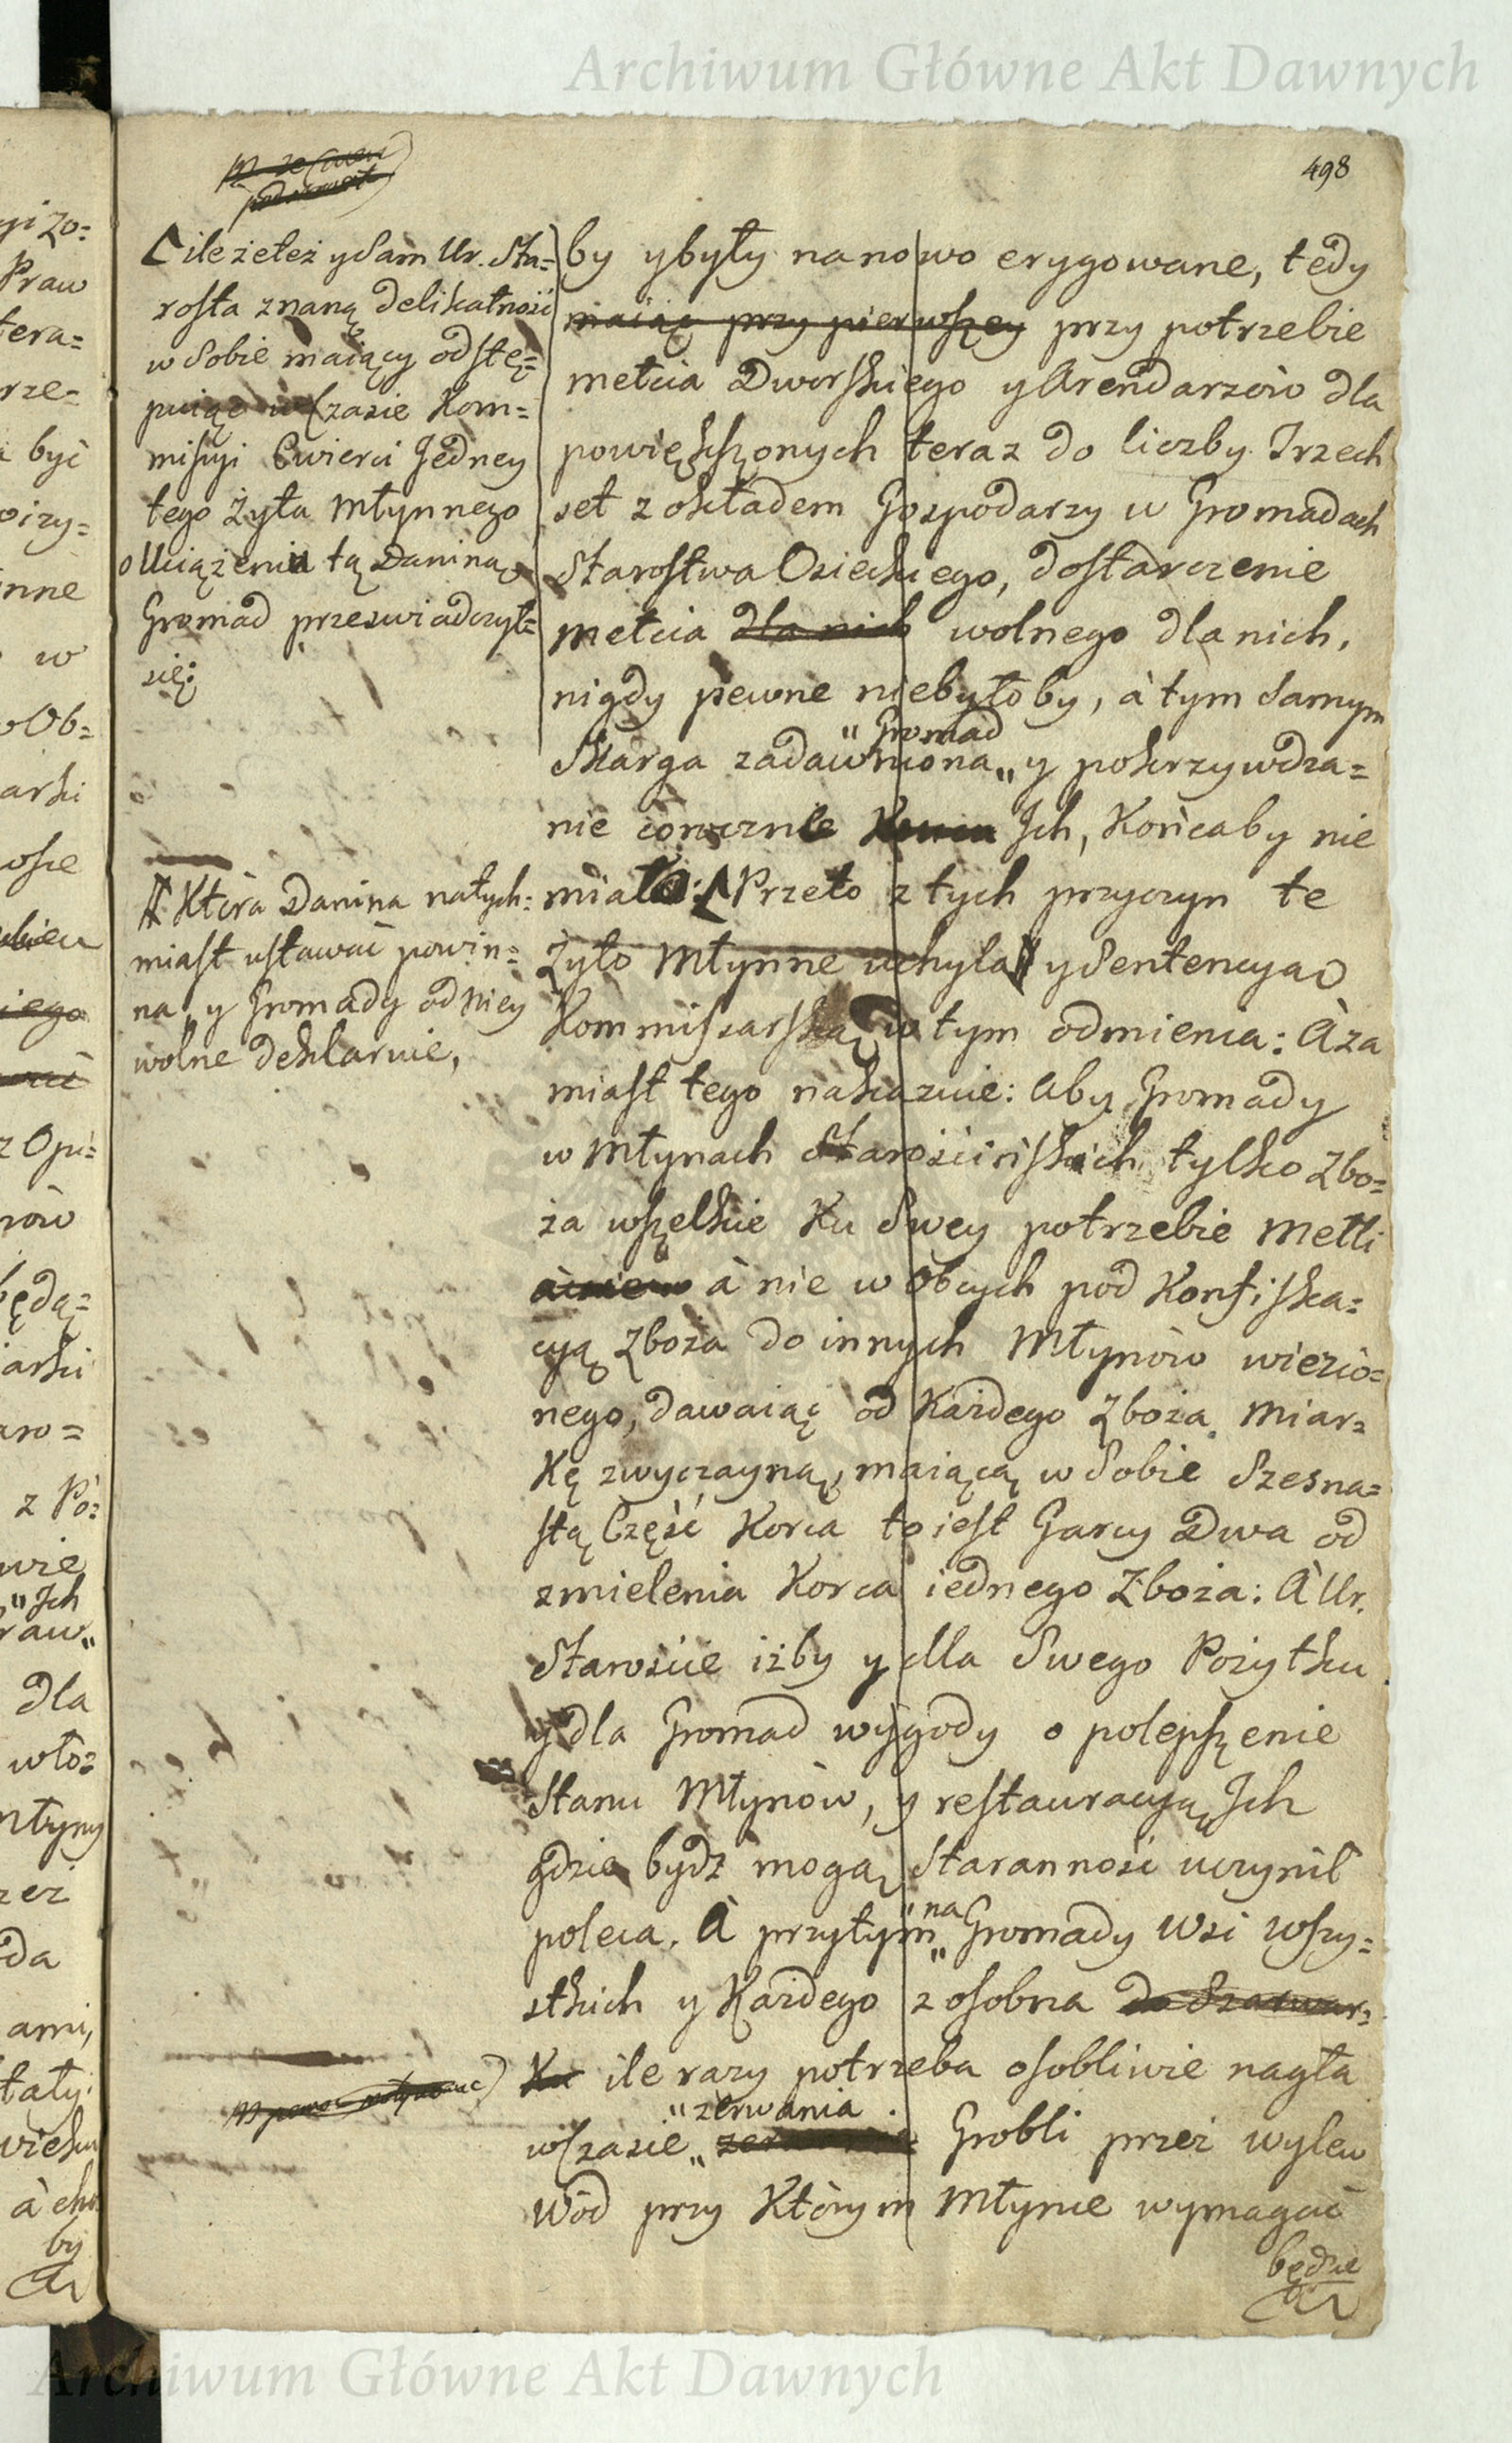 Archiwum Główne Akt Dawnych
498
ile żeteż y Sam Ur. Sta=
rosta znaną delikatność
w Sobie maiący odstę=
puiąc w Czasie Kom=
missyi Cwierci Jedney
tego Żyta Młynnego
o Uciążeniu tą Daniną
Gromad przeswiadczył
się:
Która Danina natych=
miast ustawać powin=
na y Gromady od niey
wolne deklaruie,
by y były na nowo erygowane, tedy
maiąc przy pierwszey przy potrzebie
mełcia Dworskiego y Arendarzów dla
powiększonych teraz do liczby Trzech
set z okładem Gospodarzy w Gromadach
Starostwa Osieckiego, dostarczenie
mełcia dla nich wolnego dla nich,
nigdy pewne niebyłoby, à tym Samym
"Gromad
Skarga zadawniona" y pokrzywdza=
nie corocznie Ich, Końcaby nie
miało: Przeto z tych przyczyn te
Żyto Młynne uchyla y Sentencya
Kommissarską w tym odmienia: À za
miast tego nakazuie: aby Gromady
w Młynach Starościńskich tylko Zbo=
ża wszelkie Ku Swey potrzebie mełli
à nie w Obcych pod Konfiska=
cyą Zboża do innych Młynów wiezio=
nego, dawaiąc od Każdego Zboża miar=
Kę zwyczayną, maiącą w Sobie Szesna=
stą Część Korca to iest Garcy Dwa od
zmielenia Korca iednego Zboża: À Ur.
Staroście iżby y dla Swego Pożytku
y dla Gromad wygody o polepszenie
Stanu Młynów, y restauracyą Ich
gdzie bydź mogą Staranność uczynił
poleca. À przytym "na" Gromady Wsi wszy=
stkich y Każdego z osobna do Szarwar=
Ku ile razy potrzeba osobliwie nagła
"zerwania
w Czasie" Grobli przez wylew
Wód przy Którym Młynie wymagać
będzie
Archiwum Główne Akt Dawnych